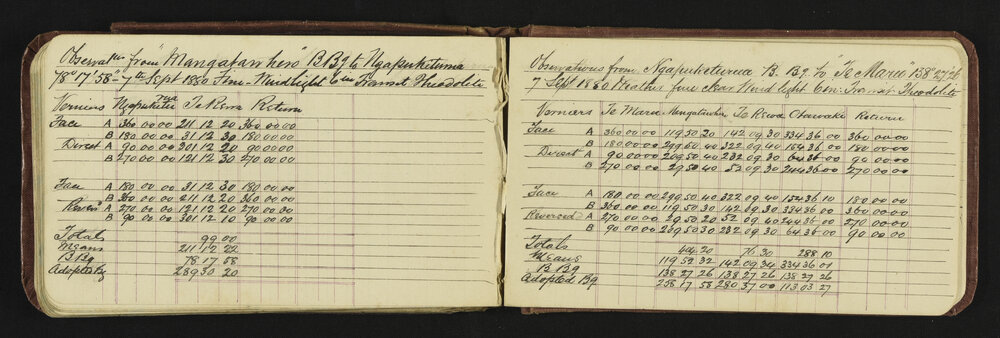 Observatns from "Mangatarihero" B Bg to Ngapuketurua
78° 17' 58" - 7th Sept 1880 Fine - Wind light 6 in Transit Theodolite
Verniers Ngapuketurua Te Rewa Return
Face A 360 00 00 211 12 20 360 00 00
B 180 00 00 31 12 30 180 00 00
Direct A 90 00 00 301 12 20 90 00 00
B 270 00 00 121 12 30 270 00 00
Face A 180 00 00 31 12 30 180 00 00
B 360 00 00 211 12 20 360 00 00
Revers A 270 00 00 121 12 20 270 00 00
B 90 00 00 301 12 10 90 00 00
Totals 99 00
Means 211 12 22
B Bg 78 17 58
Adopted Bg 289 30 20
Observations from Ngapuketurua B. Bg. to "Te Marae" 138° 27' 26
7 Sept 1880 Weather fine clear Wind light 6 in Transit Theodolite
Verniers Te Marae Te Rewa Return
Face A 360 00 00 119 59 20 142 09 30 334 36 00 360 00 00
B 180 00 00 299 59 40 322 09 40 154 36 00 180 00 00
Direct A 90 00 00 209 59 40 232 09 30 64 36 00 90 00 00
B 270 00 00 29 59 40 52 09 30 244 36 00 270 00 00
Face A 180 00 00 299 59 40 322 09 40 154 36 10 180 00 00
B 360 00 00 119 59 30 142 09 30 334 36 00 360 00 00
Reversed A 270 00 00 29 59 20 52 09 40 244 36 00 270 00 00
B 90 00 00 209 59 30 232 09 30 64 36 00 90 00 00
Totals 76 30 288 10
Means 119 59 32 142 09 34 334 36 01
B Bg 138 27 26 138 27 26 138 27 26
Adopted Bg 258 17 58 280 37 00 113 03 27